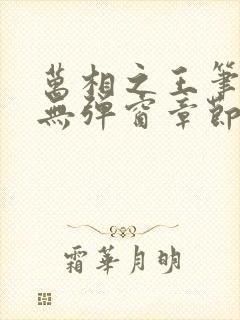 萬相之王筆
無彈窗章節
霜華月明